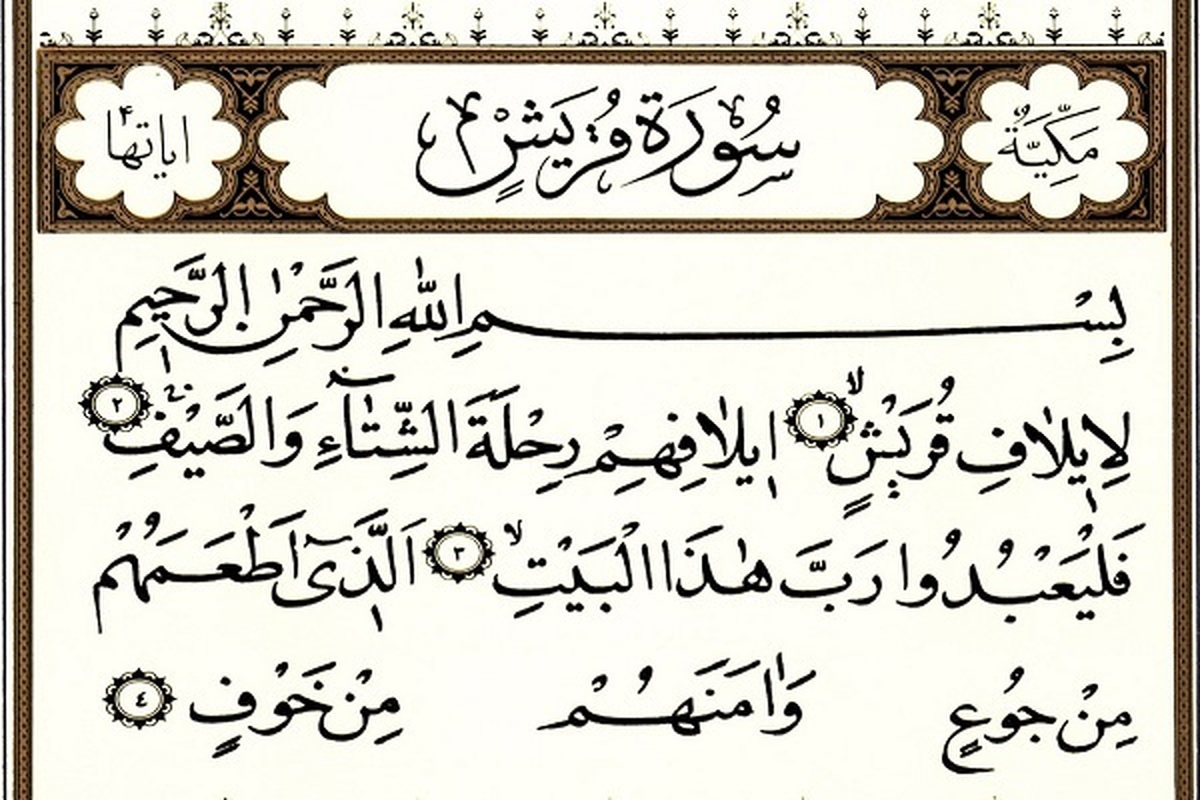 مَكِّيَّةٌ سُورَةُ قُرَيْشٍ اٰيَاتُهَا ٤
بِسْمِ اللّٰهِ الرَّحْمٰنِ الرَّحِيمِ
لِاِيلَافِ قُرَيْشٍۙ ١ اِيلَافِهِمْ رِحْلَةَ الشِّتَٓاءِ وَالصَّيْفِۚ ٢
فَلْيَعْبُدُوا رَبَّ هٰذَا الْبَيْتِۙ ٣ اَلَّذٖٓى اَطْعَمَهُمْ
مِنْ جُوعٍ وَاٰمَنَهُمْ مِنْ خَوْفٍ ٤